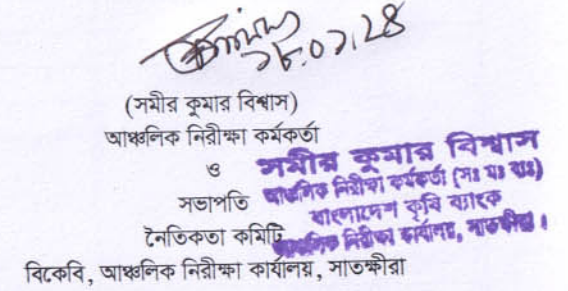 ১৮.০১.২৪
(সমীর কুমার বিশ্বাস)
আঞ্চলিক নিরীক্ষা কর্মকর্তা
ও
সভাপতি
নৈতিকতা কমিটি
বিকেবি, আঞ্চলিক নিরীক্ষা কার্যালয়, সাতক্ষীরা
সমীর কুমার বিশ্বাস
আঞ্চলিক নিরীক্ষা কর্মকর্তা (সঃ মঃ ব্যঃ)
বাংলাদেশ কৃষি ব্যাংক
আঞ্চলিক নিরীক্ষা কার্যালয়, সাতক্ষীরা।